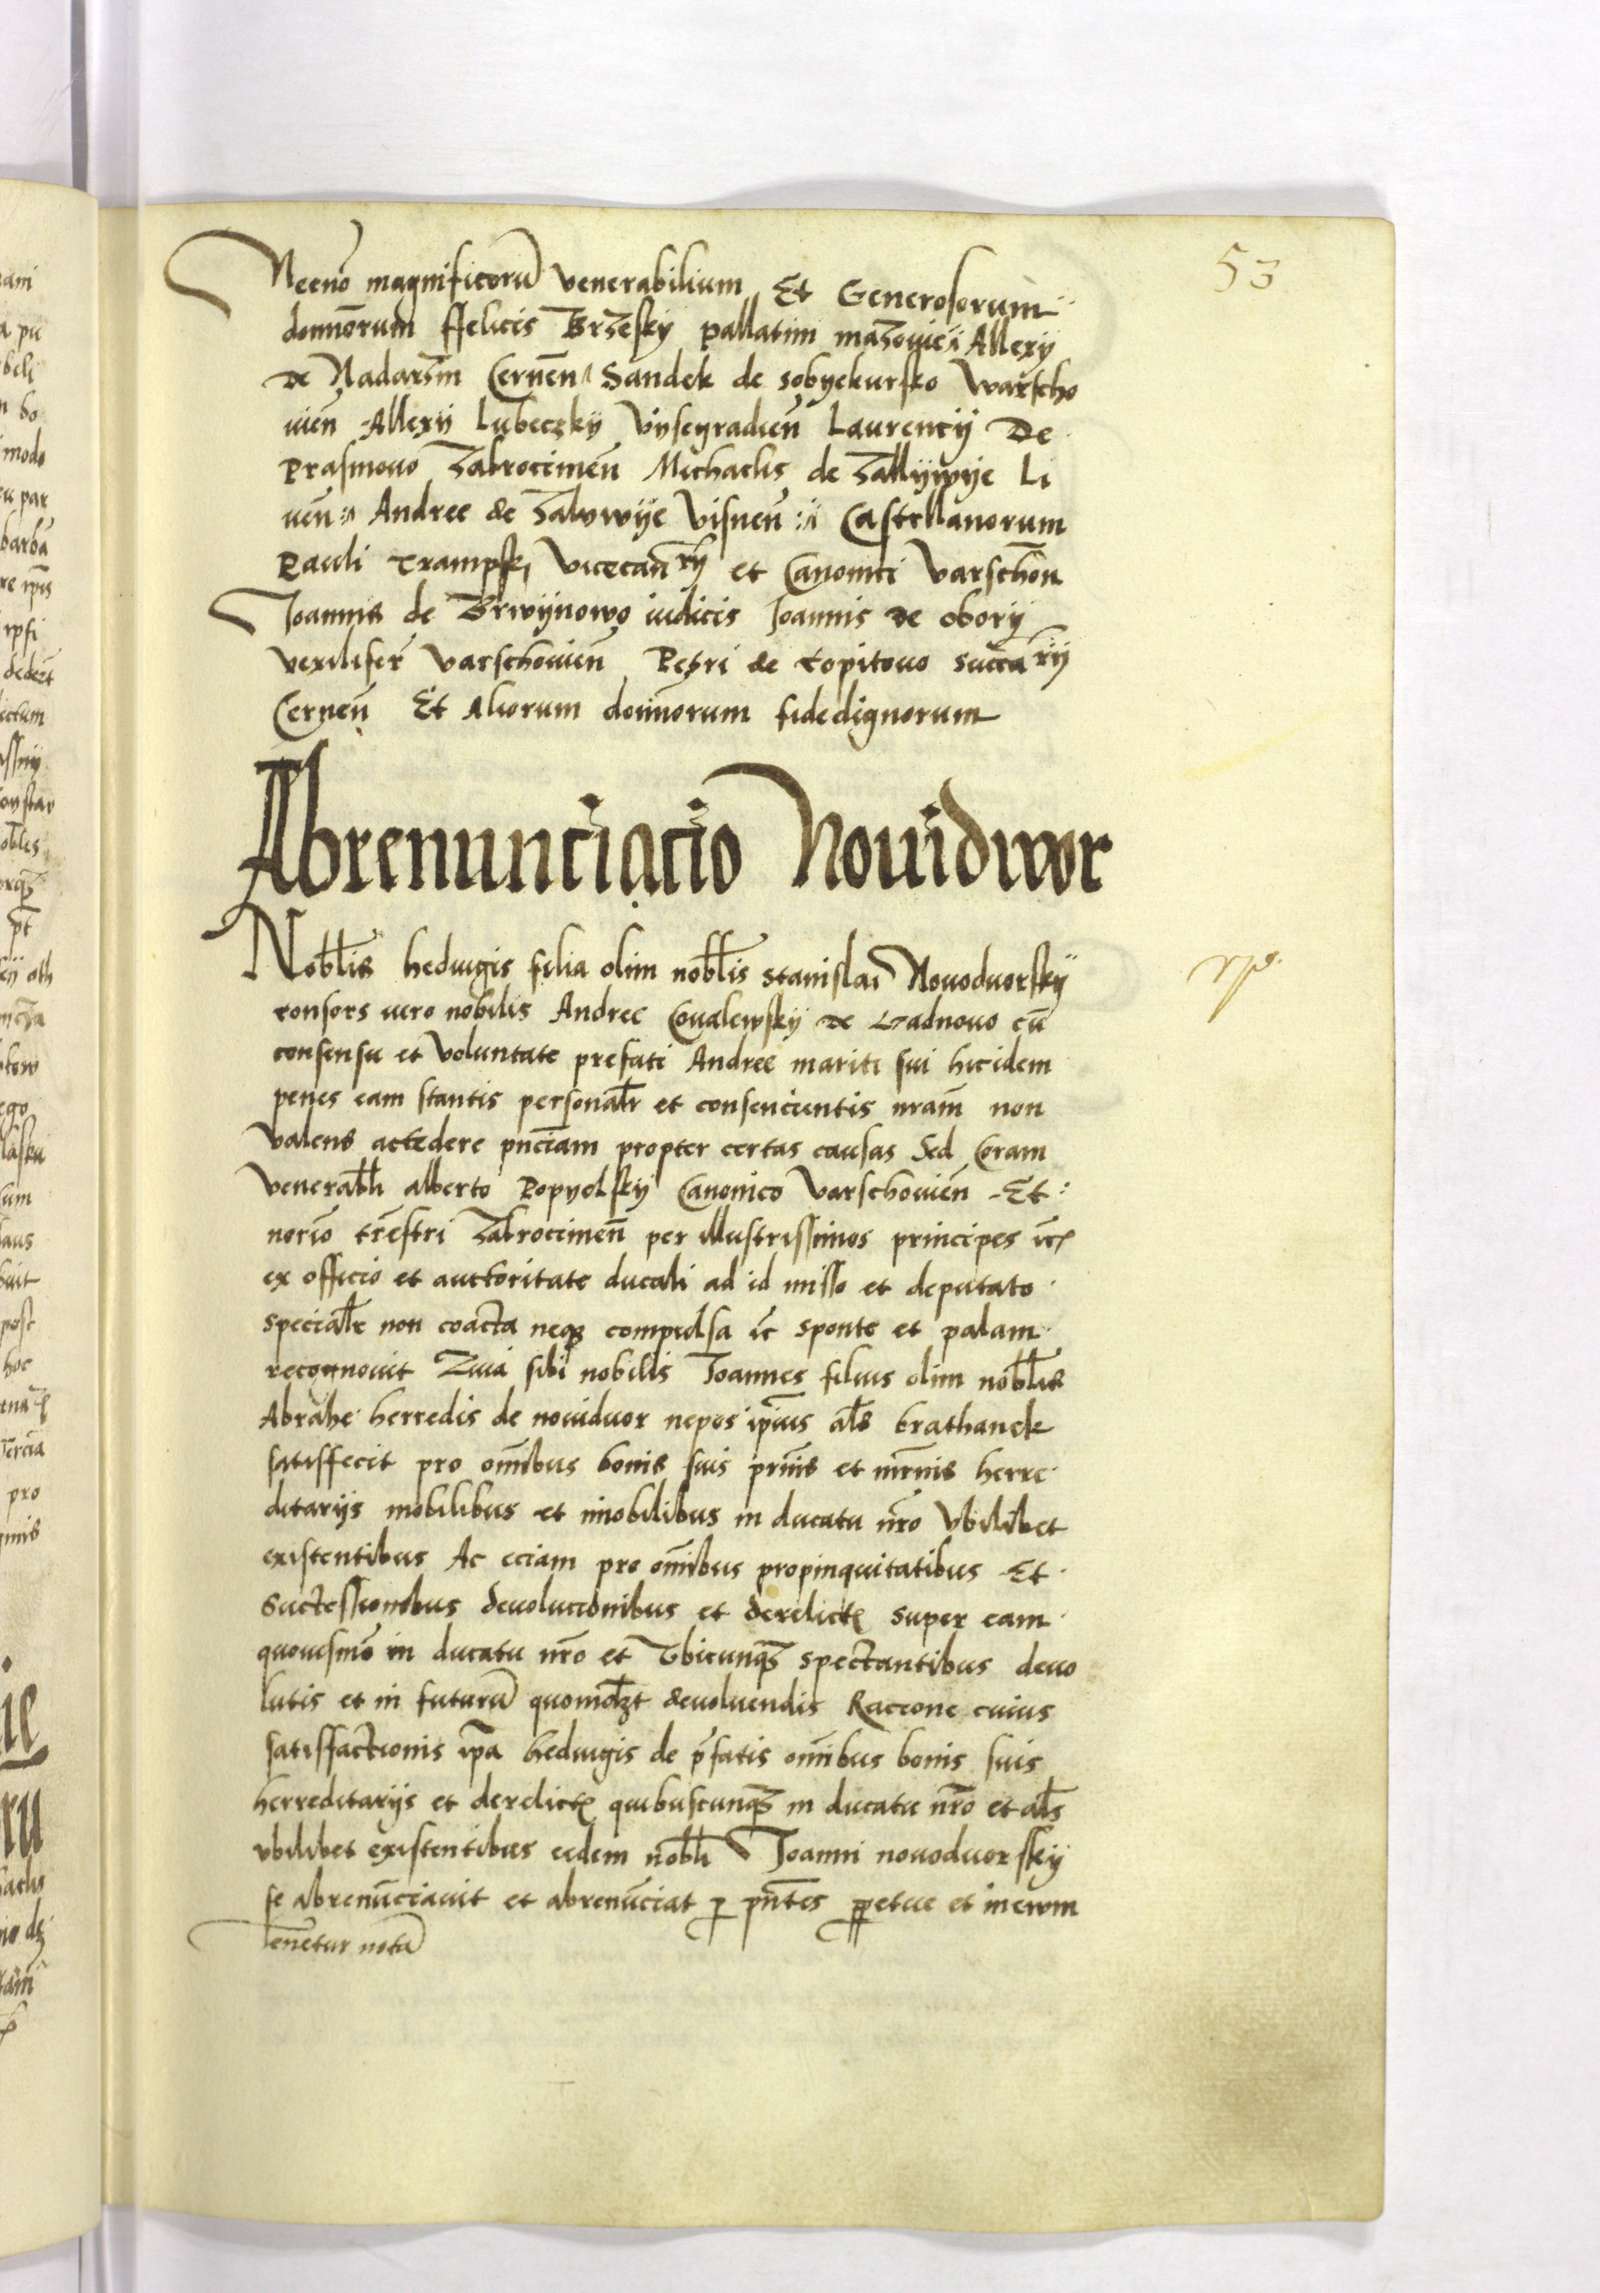 53
Necnō magnificorū venerabilium Et Generosorum
domnorum ffelicis Brzesky pallatini mazouie Allexy
de Nadarzin Cernen Sandek de sobyekursko warscho
uien Allexy Lubeczky Vysegradien Laurencij De
Prasmouo Zakrocimen Michaelis de Zallywye Li
uen Andree de Zalywye Visnen Castellanorum
Pauli Trampsky vicecancrij et Canonici Varschouien
Joannis de Brwynowo iudicis Joannis de obory
vexiliferi Varschouien Petri de Topitouo succarij
Cernen Et Aliorum domnorum fidedignorum
Abrenunciacio Nouidwor
Nobl̄is heduigis filia olim nobl̄is Stanislai Nouoduorsky
consors uero nobilis Andree Coualewsky de Ladnouo cū
consensu et voluntate prefati Andree mariti sui hicidem
penes eam stantis personal̄r et consencientis nram̄ non
valens accedere pn̄ciam propter certas causas Sed Coram
venerabl̄i alberto Popyelsky Canonico Varschouien̄ Et
norio tr̄estri Zakrocimen̄ per illustrissimos principes etc
ex officio et auctoritate ducali ad id misso et deputato
special̄r non coacta neqꝫ compulsa etc sponte et palam
recognouit Quia sibi nobilis Joannes filius olim nobl̄is
Abrahe herredis de nouiduor nepos ip̄ius al̄s brathanek
satisffecit pro om̄ibus bonis suis pr̄nis et mr̄nis herre
ditarijs mobilibus et im̄obilibus in ducatu nr̄o vbilibet
existentibus Ac eciam pro om̄ibus propinquitatibus Et
Successionibus deuolucionibus et derelictꝭ super eam
quouismō in ducatu nr̄o et Vbicunqꝫ spectantibus deuo
lutis et in futurū quomolꝫt deuoluendis Racione cuius
satisffactionis ip̄a heduigis de p̄fatis om̄ibus bonis suis
herreditarijs et derelictꝭ quibuscunqꝫ in ducatu nr̄o et al̄s
vbilibet existentibus eidem nobl̄i Joanni nouoduorsky
se abrenūciauit et abrenūciat ꝑ pn̄tes ꝑpetue et in ewm
Tenetur notā